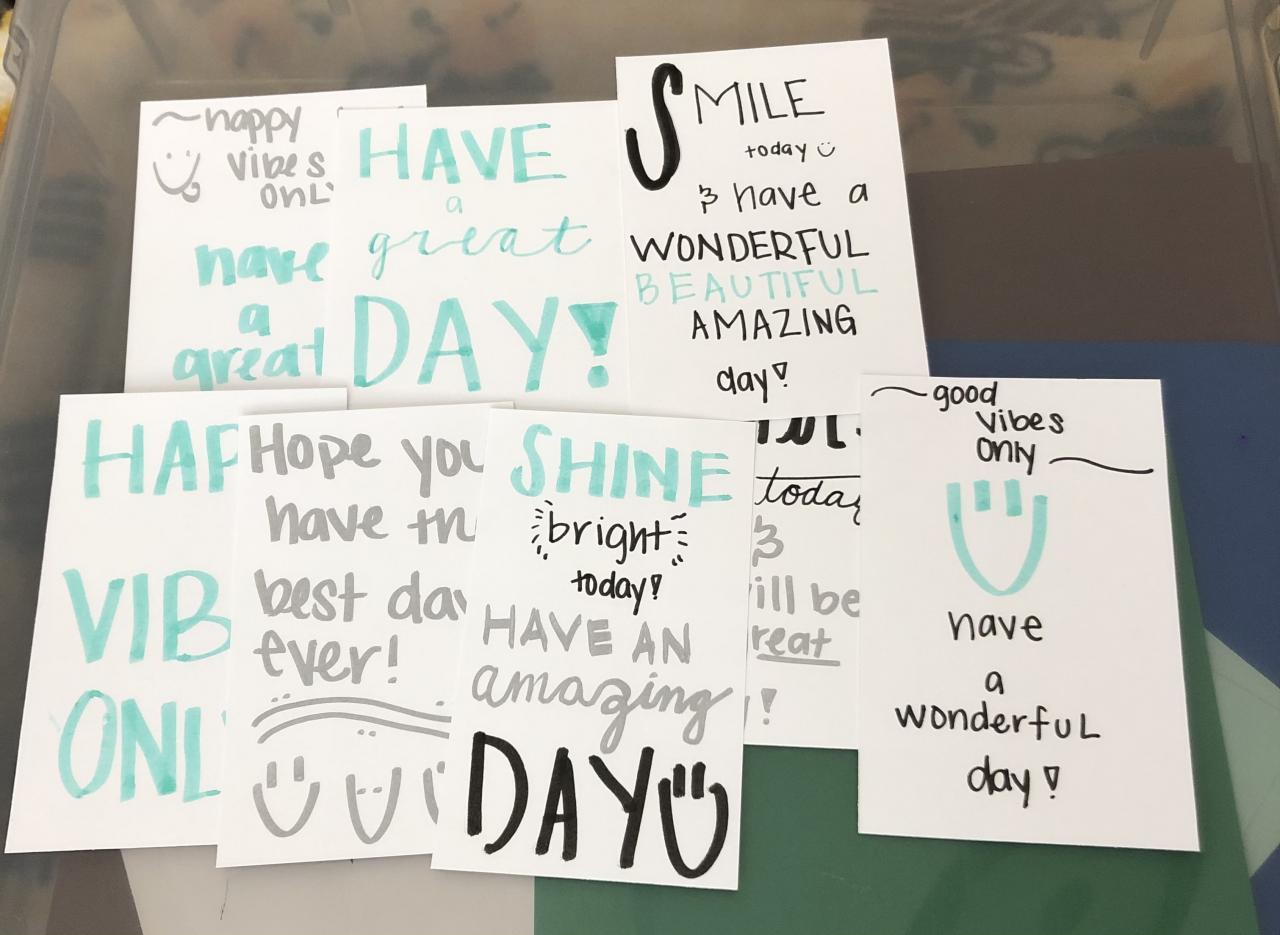 ~happy
vibes
have
a
great
HAVE
a
great
DAY!
SMILE
today
& have a
WONDERFUL
BEAUTIFUL
AMAZING
day!
Hope you
have
best
ever!
SHINE
bright
today!
HAVE AN
amazing
DAY
today
&
be
!
~good
vibes
only~
have
a
wonderful
day!